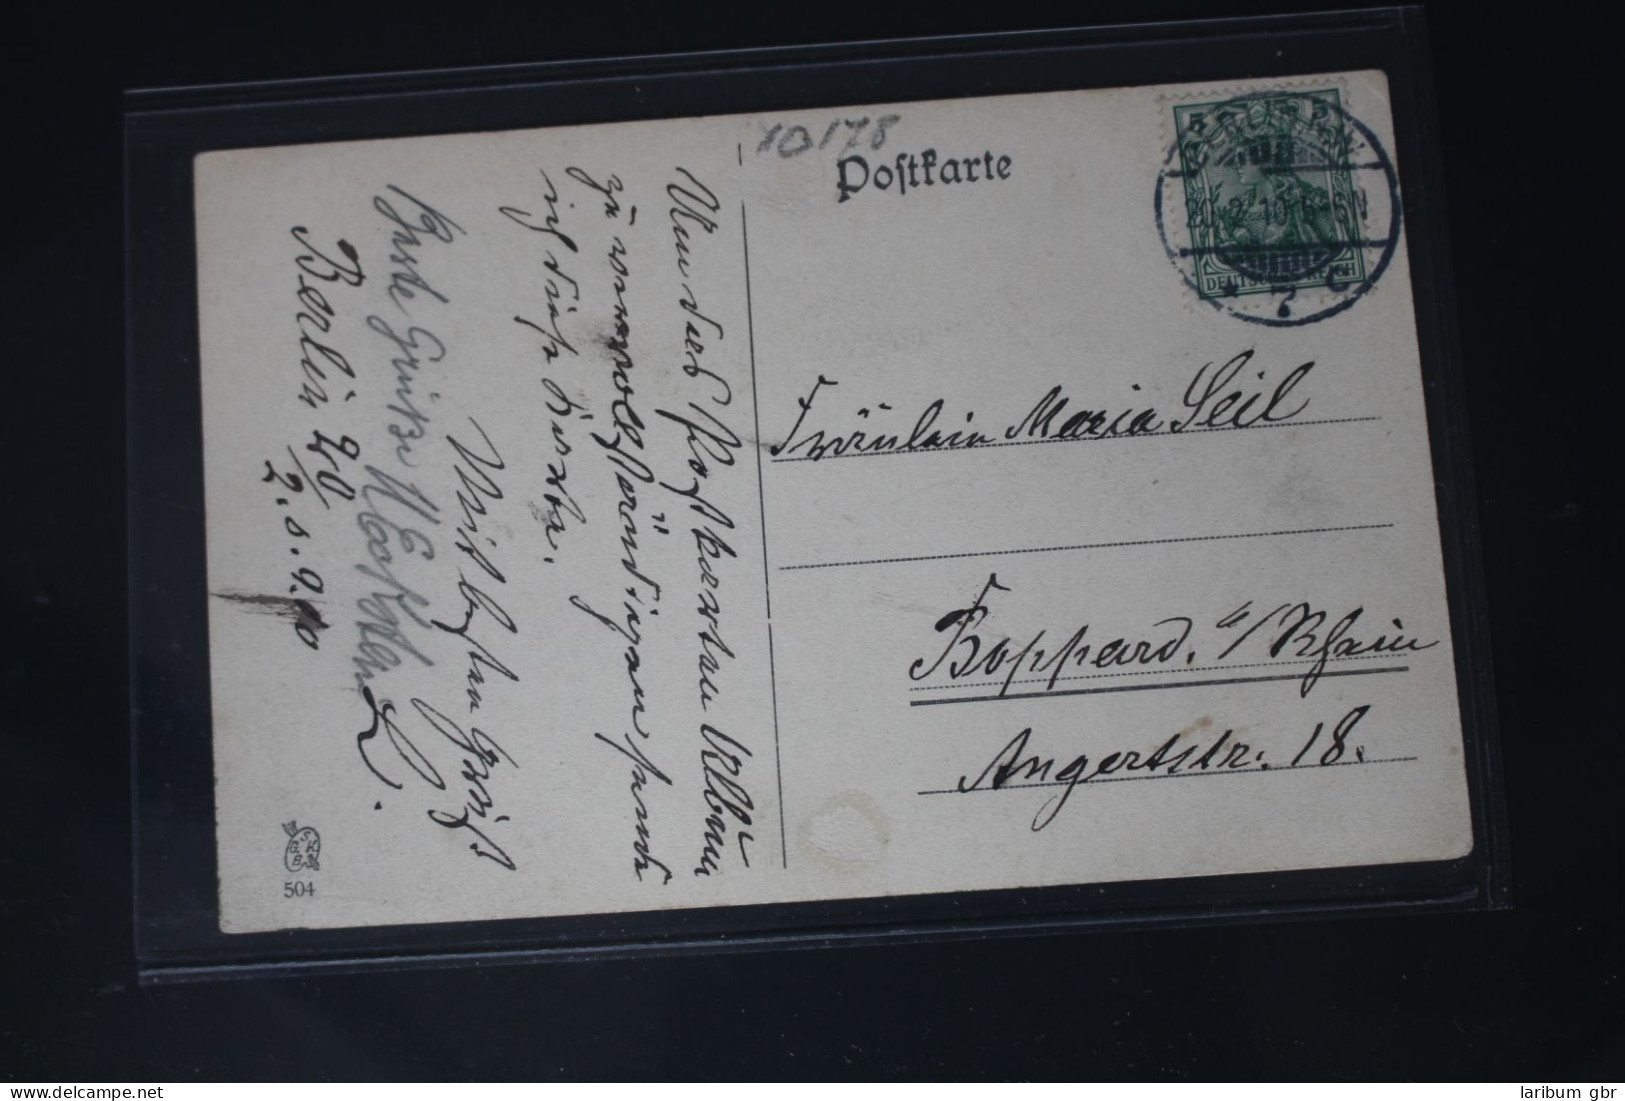 10178
Postkarte
5 5
DEUTSCHES REICH
20. 2. 10. 5-6N
* 7 c
Fräulein Maria Seil
Boppard. a/Rhein
Angertstr. 18.
Um das Postkarten Album
zu vervollständigen sende
ich diese Karte.
Mit besten Gruß
Beste Grüße
Berlin 20/2. s. 9.10
S K
G.
B.
504
laribum gbr